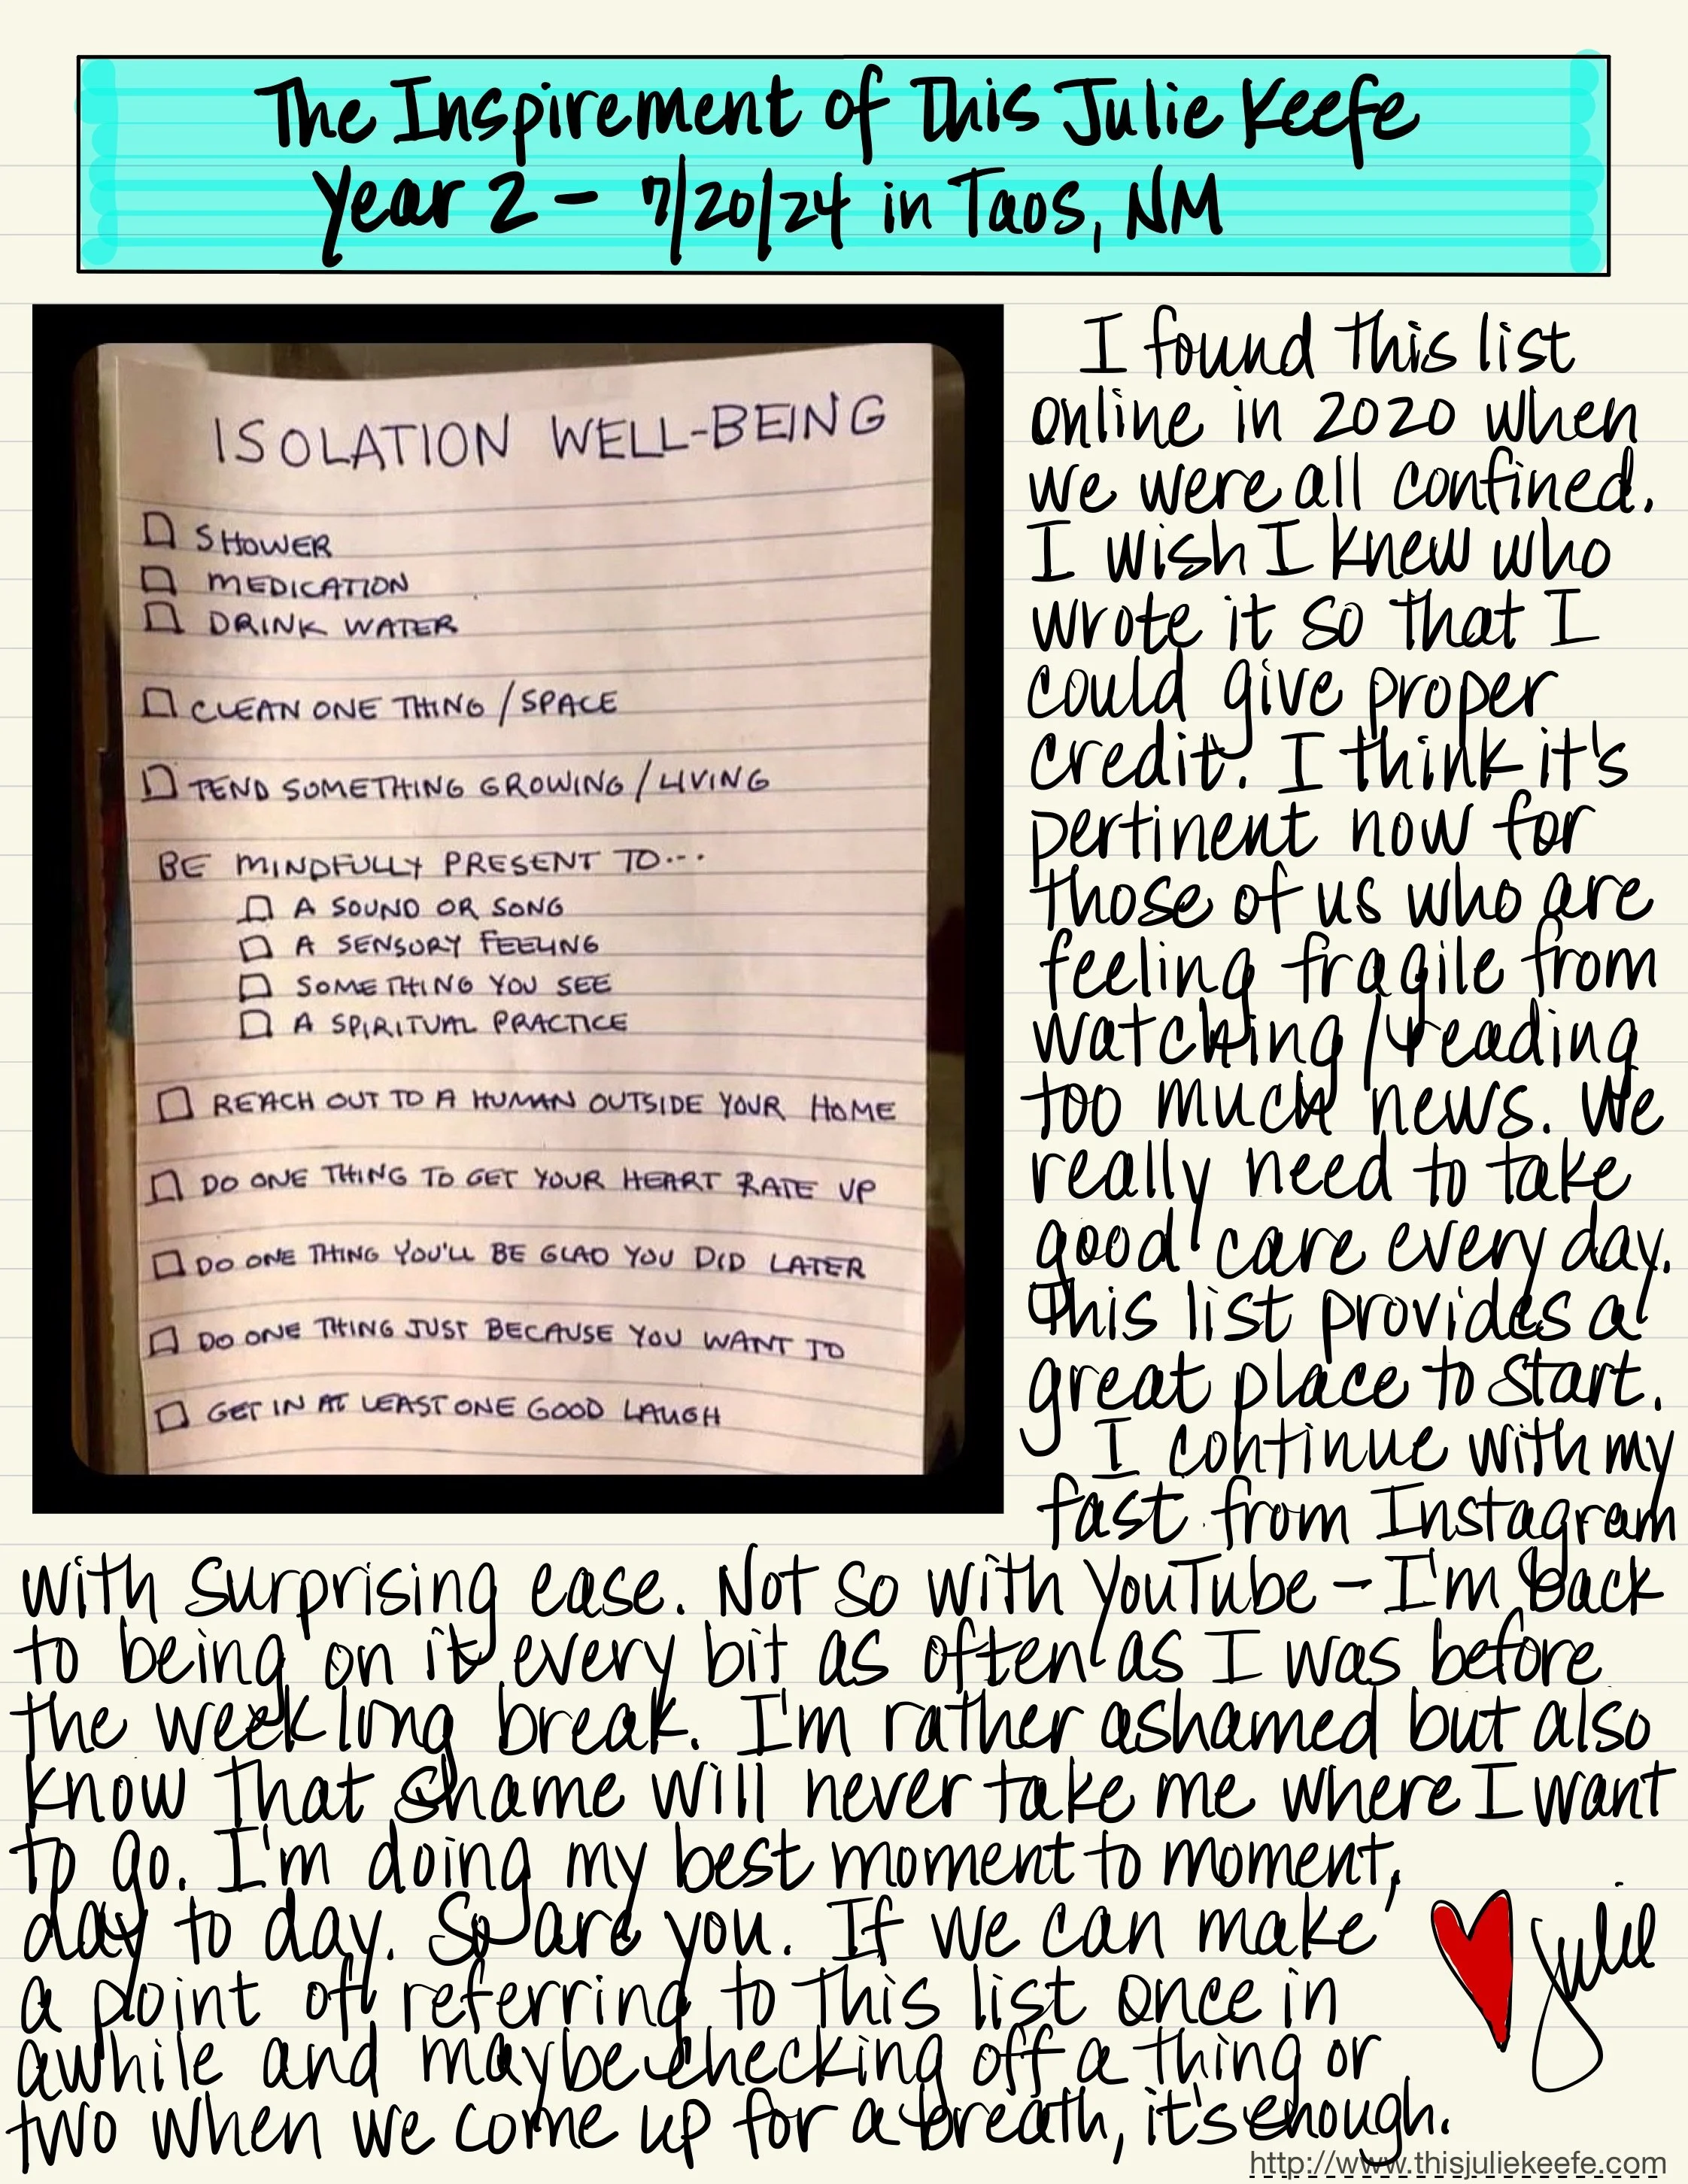 The Inspirement of This Julie Keefe
Year 2 - 7/20/24 in Taos, NM
ISOLATION WELL-BEING
SHOWER
MEDICATION
DRINK WATER
CLEAN ONE THING / SPACE
TEND SOMETHING GROWING / LIVING
BE MINDFULLY PRESENT TO...
A SOUND OR SONG
A SENSORY FEELING
SOMETHING YOU SEE
A SPIRITUAL PRACTICE
REACH OUT TO A HUMAN OUTSIDE YOUR HOME
DO ONE THING TO GET YOUR HEART RATE UP
DO ONE THING YOU'LL BE GLAD YOU DID LATER
DO ONE THING JUST BECAUSE YOU WANT TO
GET IN AT LEAST ONE GOOD LAUGH
I found this list
online in 2020 when
we were all confined.
I wish I knew who
wrote it so that I
could give proper
credit. I think it's
pertinent now for
those of us who are
feeling fragile from
watching/reading
too much news. We
really need to take
good care every day.
This list provides a
great place to start.
I continue with my
fast from Instagram
with surprising ease. Not so with YouTube - I'm back
to being on it every bit as often as I was before
the week long break. I'm rather ashamed but also
know that shame will never take me where I want
to go. I'm doing my best moment to moment,
day to day. So are you. If we can make
a point of referring to this list once in
awhile and maybe checking off a thing or
two when we come up for a breath, it's enough.
Julie
http://www.thisjuliekeefe.com